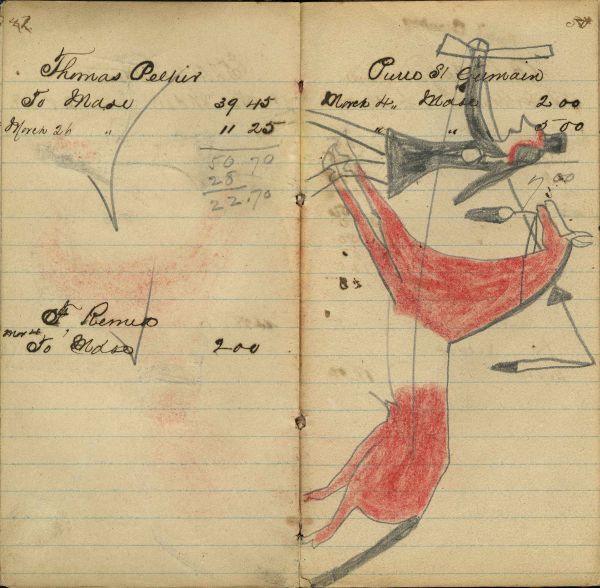 42
Thomas Pelkir
To Mdse 39 45
March 26 " 11 25
50.70
28
22.70
St Remer
Mar 4
To Mdse 2 00
Pierre St Germain
March 4 " Mdse 2 00
" " 5 00
7 00